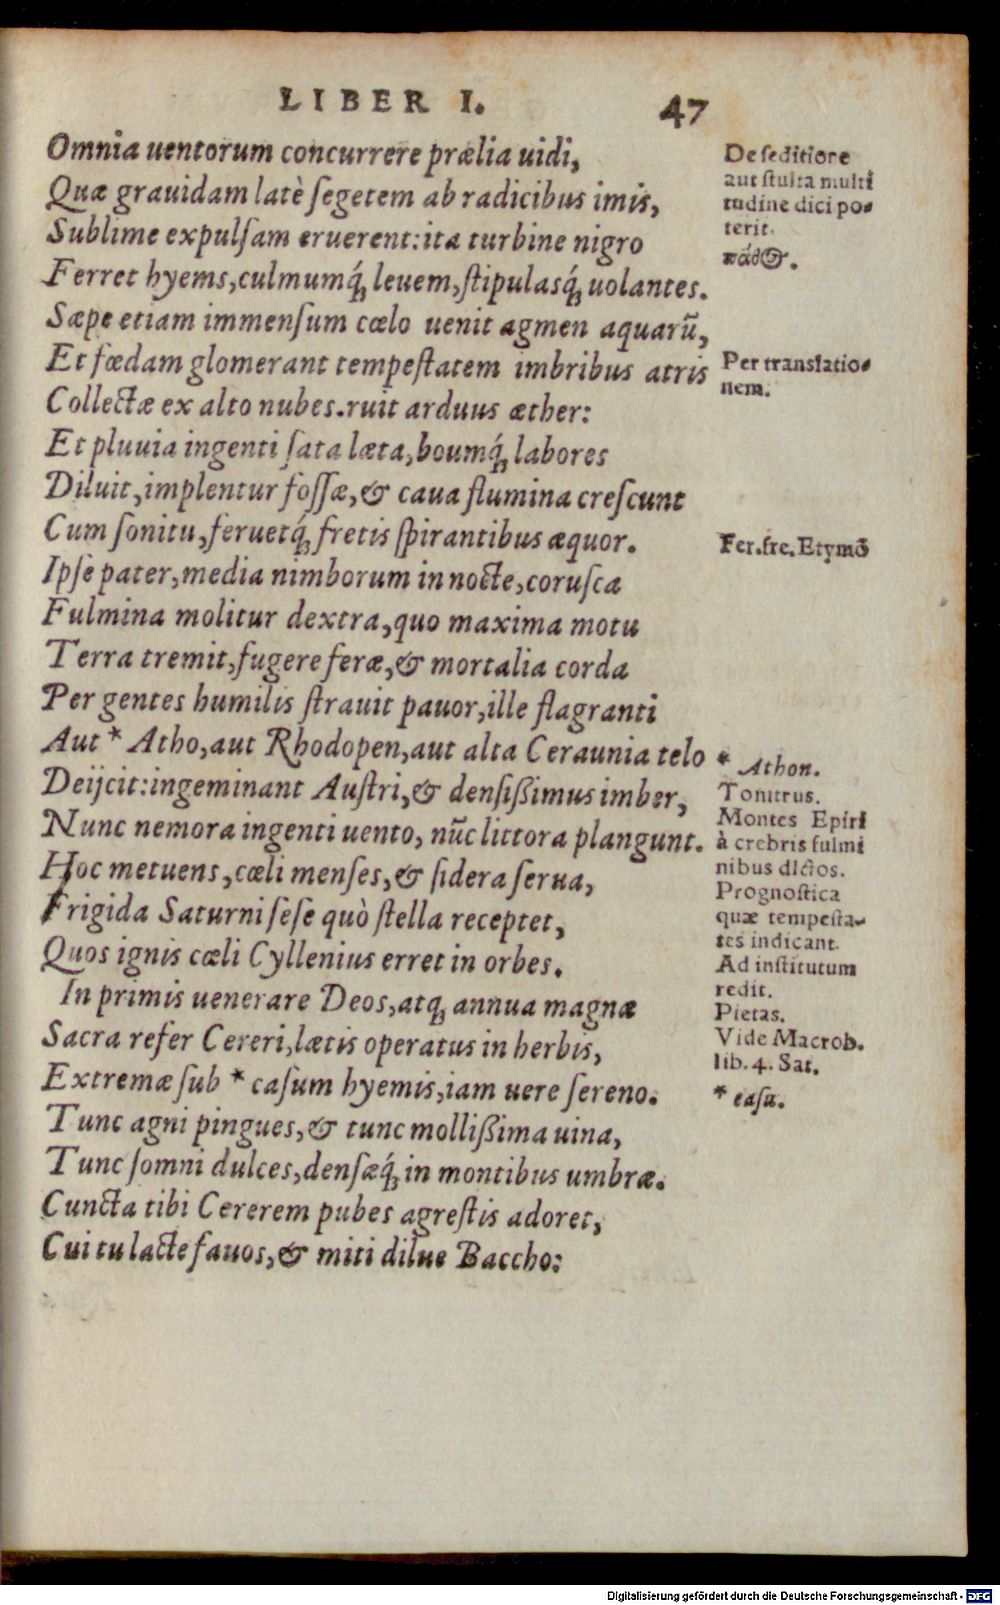 LIBER I. 47
Omnia uentorum concurrere prælia uidi,
Quæ grauidam latè ſegetem ab radicibus imis,
Sublime expulſam eruerent: ita turbine nigro
Ferret hyems, culmumq́; leuem, ſtipulasq́; uolantes.
Sæpe etiam immenſum cœlo uenit agmen aquarū,
Et fœdam glomerant tempeſtatem imbribus atris
Collectæ ex alto nubes. ruit arduus æther:
Et pluuia ingenti ſata læta, boumq́; labores
Diluit, implentur foſſæ, & caua flumina creſcunt
Cum ſonitu, feruetq́; fretis ſpirantibus æquor.
Ipſe pater, media nimborum in nocte, coruſca
Fulmina molitur dextra, quo maxima motu
Terra tremit, fugere feræ, & mortalia corda
Per gentes humilis ſtrauit pauor, ille flagranti
Aut * Atho, aut Rhodopen, aut alta Ceraunia telo
Deijcit: ingeminant Auſtri, & denſißimus imber,
Nunc nemora ingenti uento, nūc littora plangunt.
Hoc metuens, cœli menſes, & ſidera ſerua,
Frigida Saturni ſeſe quò ſtella receptet,
Quos ignis cœli Cyllenius erret in orbes.
In primis uenerare Deos, atq; annua magnæ
Sacra refer Cereri, lætis operatus in herbis,
Extremæ ſub * caſum hyemis, iam uere ſereno.
Tunc agni pingues, & tunc mollißima uina,
Tunc ſomni dulces, denſæq́; in montibus umbræ.
Cuncta tibi Cererem pubes agreſtis adoret,
Cui tu lacte fauos, & miti dilue Baccho:
De ſeditiore
aut ſtulta multi
tudine dici po-
terit.
Per translatio-
nem.
Fer. fre. Etymō
* Athon.
Tonitrus.
Montes Epiri
à crebris fulmi
nibus dictos.
Prognoſtica
quæ tempeſta-
tes indicant.
Ad inſtitutum
redit.
Pietas.
Vide Macrob.
lib. 4. Sat.
* caſu.
Digitalisierung gefördert durch die Deutsche Forschungsgemeinschaft - DFG